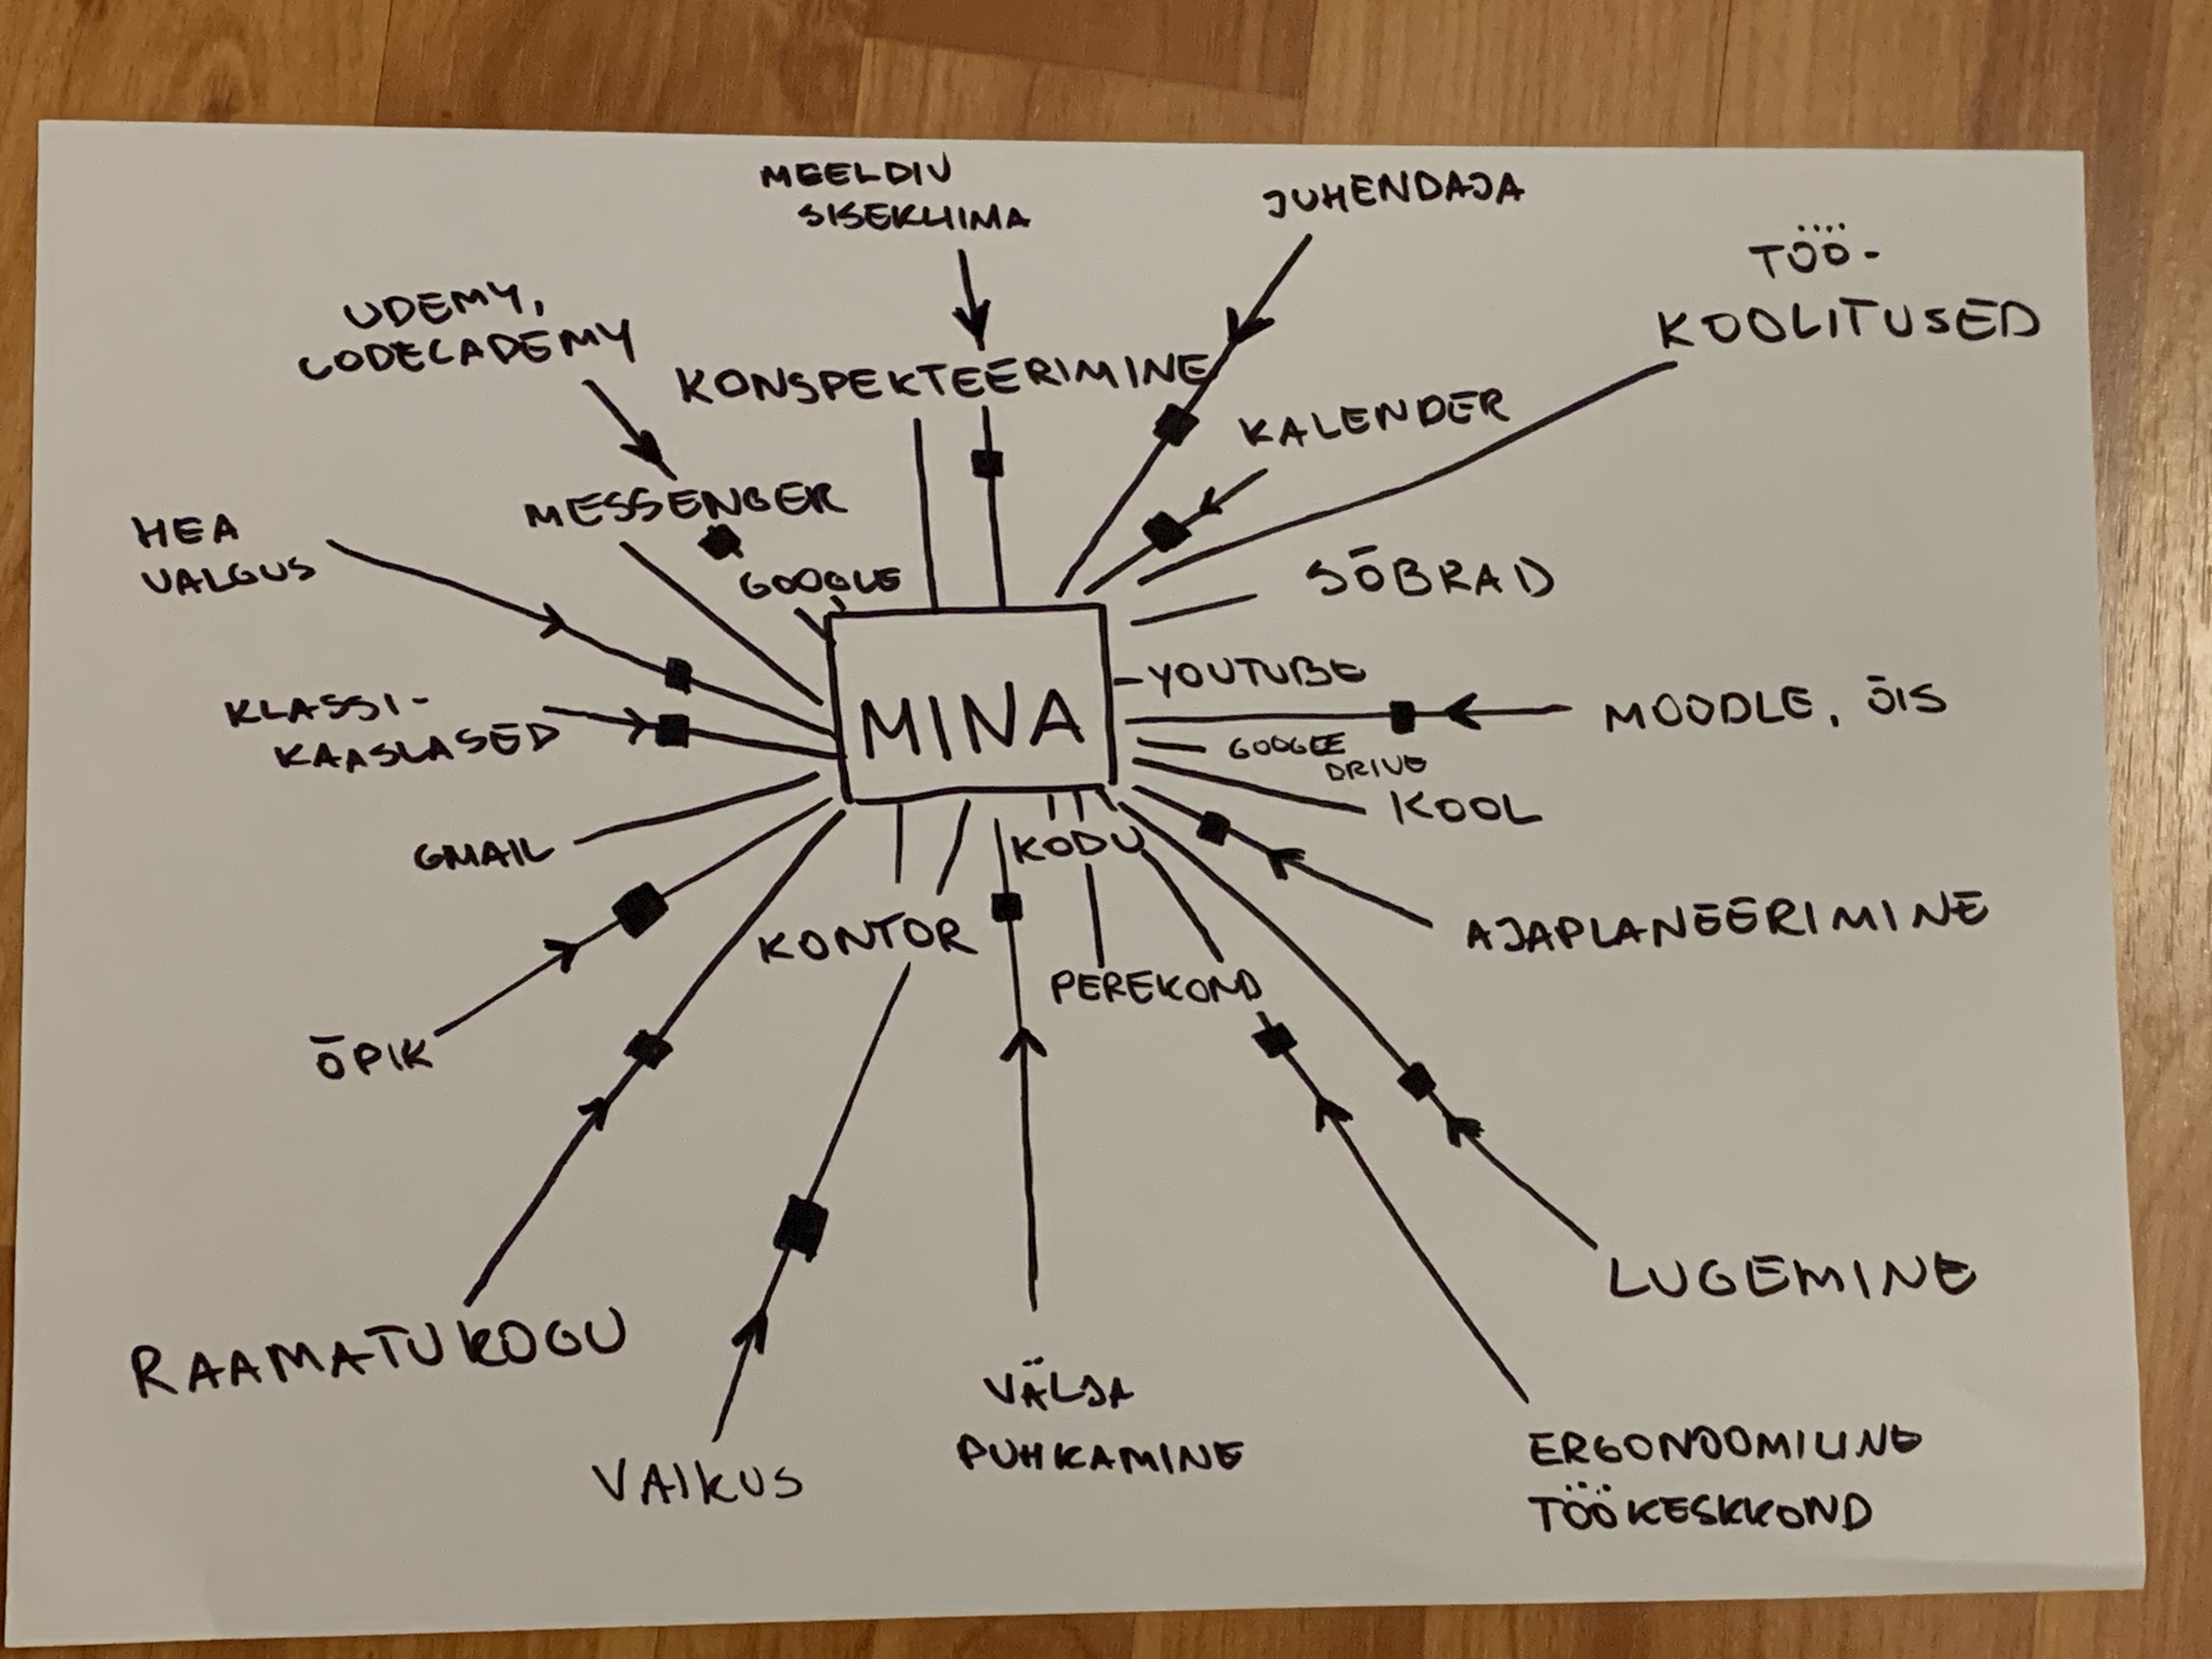 MEELDIV
SISEKLIIMA
JUHENDAJA
TÖÖ-
KOOLITUSED
UDEMY,
CODECADEMY
KONSPEKTEERIMINE
KALENDER
MESSENGER
HEA
VALGUS
GOOGLE
SÕBRAD
MINA
YOUTUBE
KLASSI-
KAASLASED
MOODLE, ÕIS
GOOGLE
DRIVE
KOOL
GMAIL
KODU
KONTOR
AJAPLANEERIMINE
PEREKOND
ÕPIK
LUGEMINE
RAAMATUKOGU
VÄLJA
PUHKAMINE
VAIKUS
ERGONOOMILINE
TÖÖKESKKOND